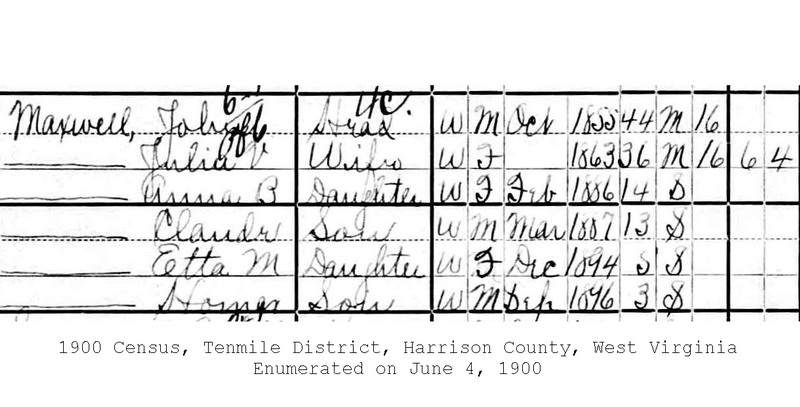 Maxwell, John Head W M Oct 1855 44 M 16
Julia V Wife W F 1863 36 M 16 6 4
Anna B Daughter W F Feb 1886 14 S
Claude Son W M Mar 1887 13 S
Etta M Daughter W F Dec 1894 5 S
Homer Son W M Sep 1896 3 S
1900 Census, Tenmile District, Harrison County, West Virginia
Enumerated on June 4, 1900